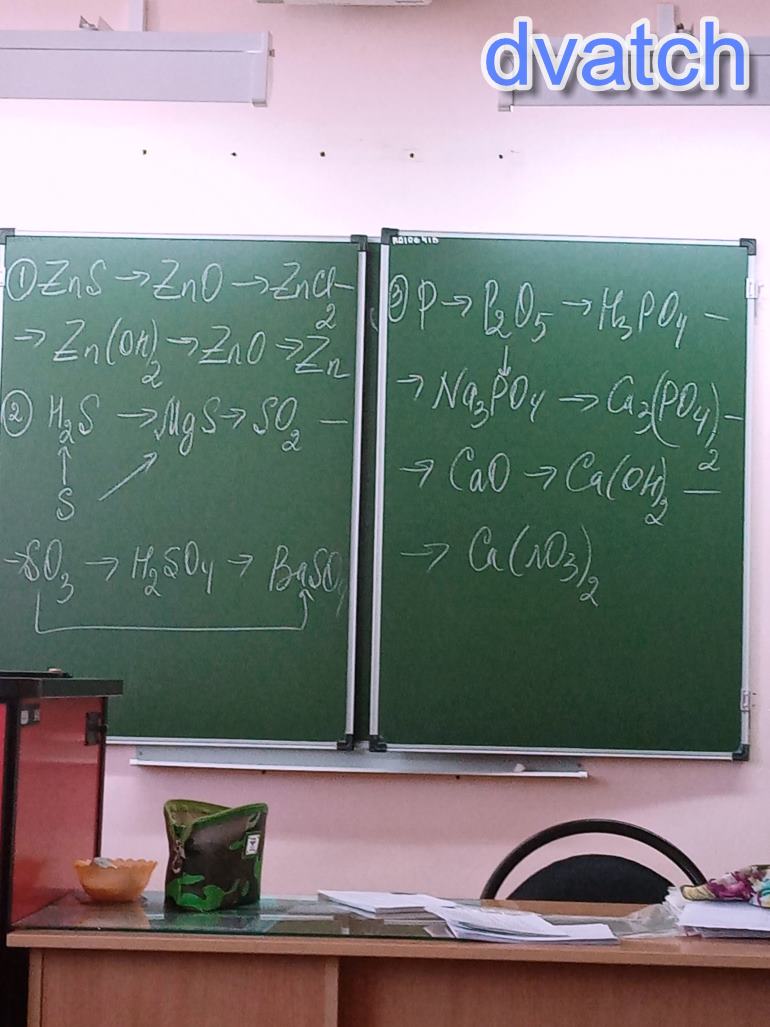 dvatch
① ZnS → ZnO → ZnCl₂ –
→ Zn(OH)₂ → ZnO → Zn
② H₂S → MgS → SO₂ –
↑ ↗
S
→ SO₃ → H₂SO₄ → BaSO₄
③ P → P₂O₅ → H₃PO₄ –
↓
→ Na₃PO₄ → Ca₃(PO₄)₂ –
→ CaO → Ca(OH)₂ –
→ Ca(NO₃)₂